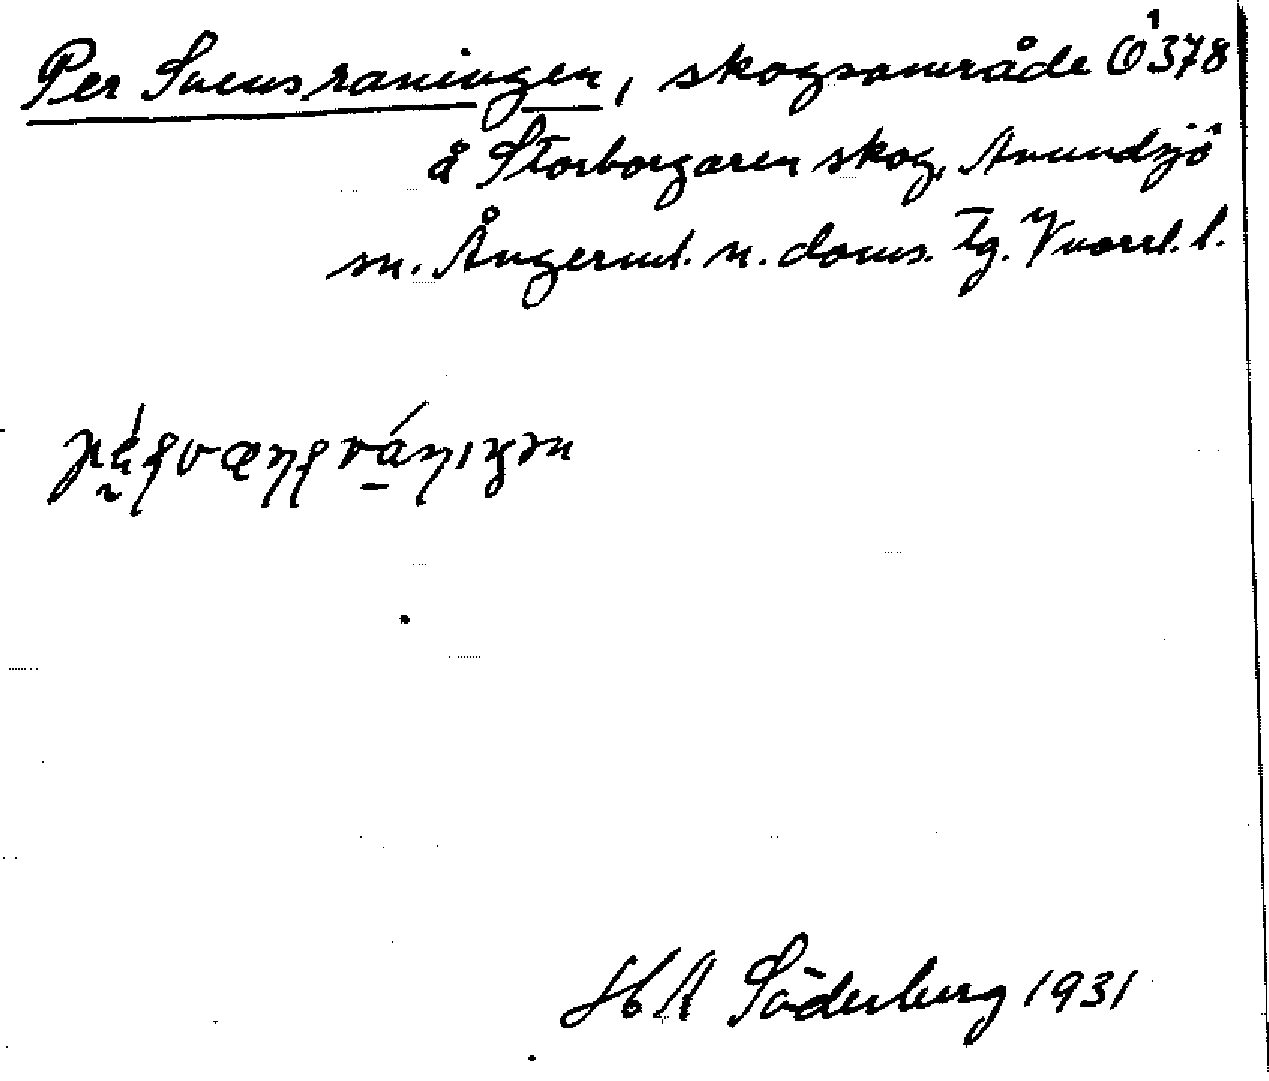 Per Svensraningen, skogsområde Ö 378
å Storborgaren skog, Anundsjö
sn. Ångerml. n. doms. Tg.
H A Söderberg 1931